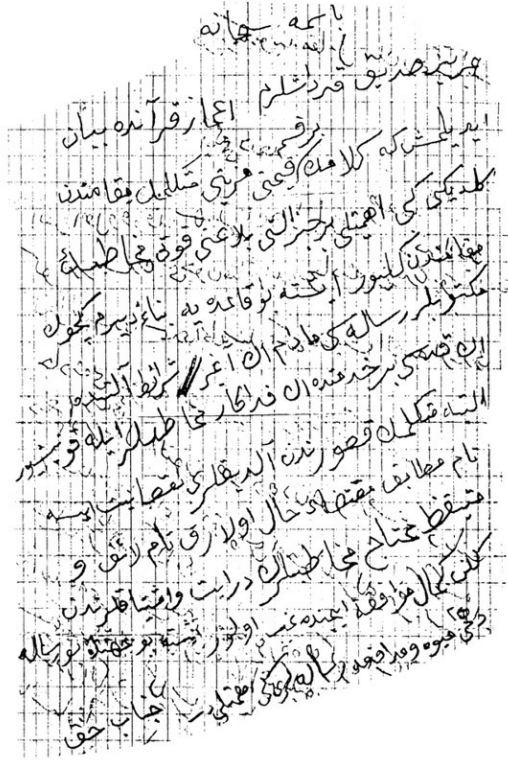 باسمه سبحانه
عزيز صديق قرداشلرم اعجاز قرآنده بيان
ايديلمش كه كلامك قيمتى مزيتى متكلمك مقامندن
كلديكى كبى اهميتلى بر جزالتى بلاغتى قوتى مخاطبك
مقامندن كليور ايشته بو قاعده يه بناءً ديرم كه
مكتوبلر رساله سى مادام اك آغر شرائط آلتنده
اك قدسى بر خدمتده اك فداكار مخاطبلر ايله قونشيور
البته متكلمك قصورندن آلديقلرى نقصانيت ايسه
تام مطابق مقتضاى حال اولارق تام لائق و
متيقظ محتاج مخاطبلرك درايت واشتياقلرندن
كلن كمال موافقه ايچنده اولور ايشته بو جهتده بو رساله
دخى ميوه ومدافعه رساله لرى كبى اهميتلى در جناب حق